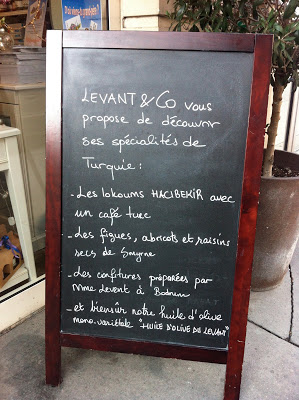 LEVANT & Co vous
propose de découvrir
ses spécialités de
Turquie :
- Les lokoums HACIBEKIR avec
un café turc
- Des figues, abricots et raisins
secs de Smyrne
- des confitures préparées par
Mme Levent à Bodrum
- et biensûr notre huile d'olive
mono-variétale "HUILE D'OLIVE DU LEVANT"